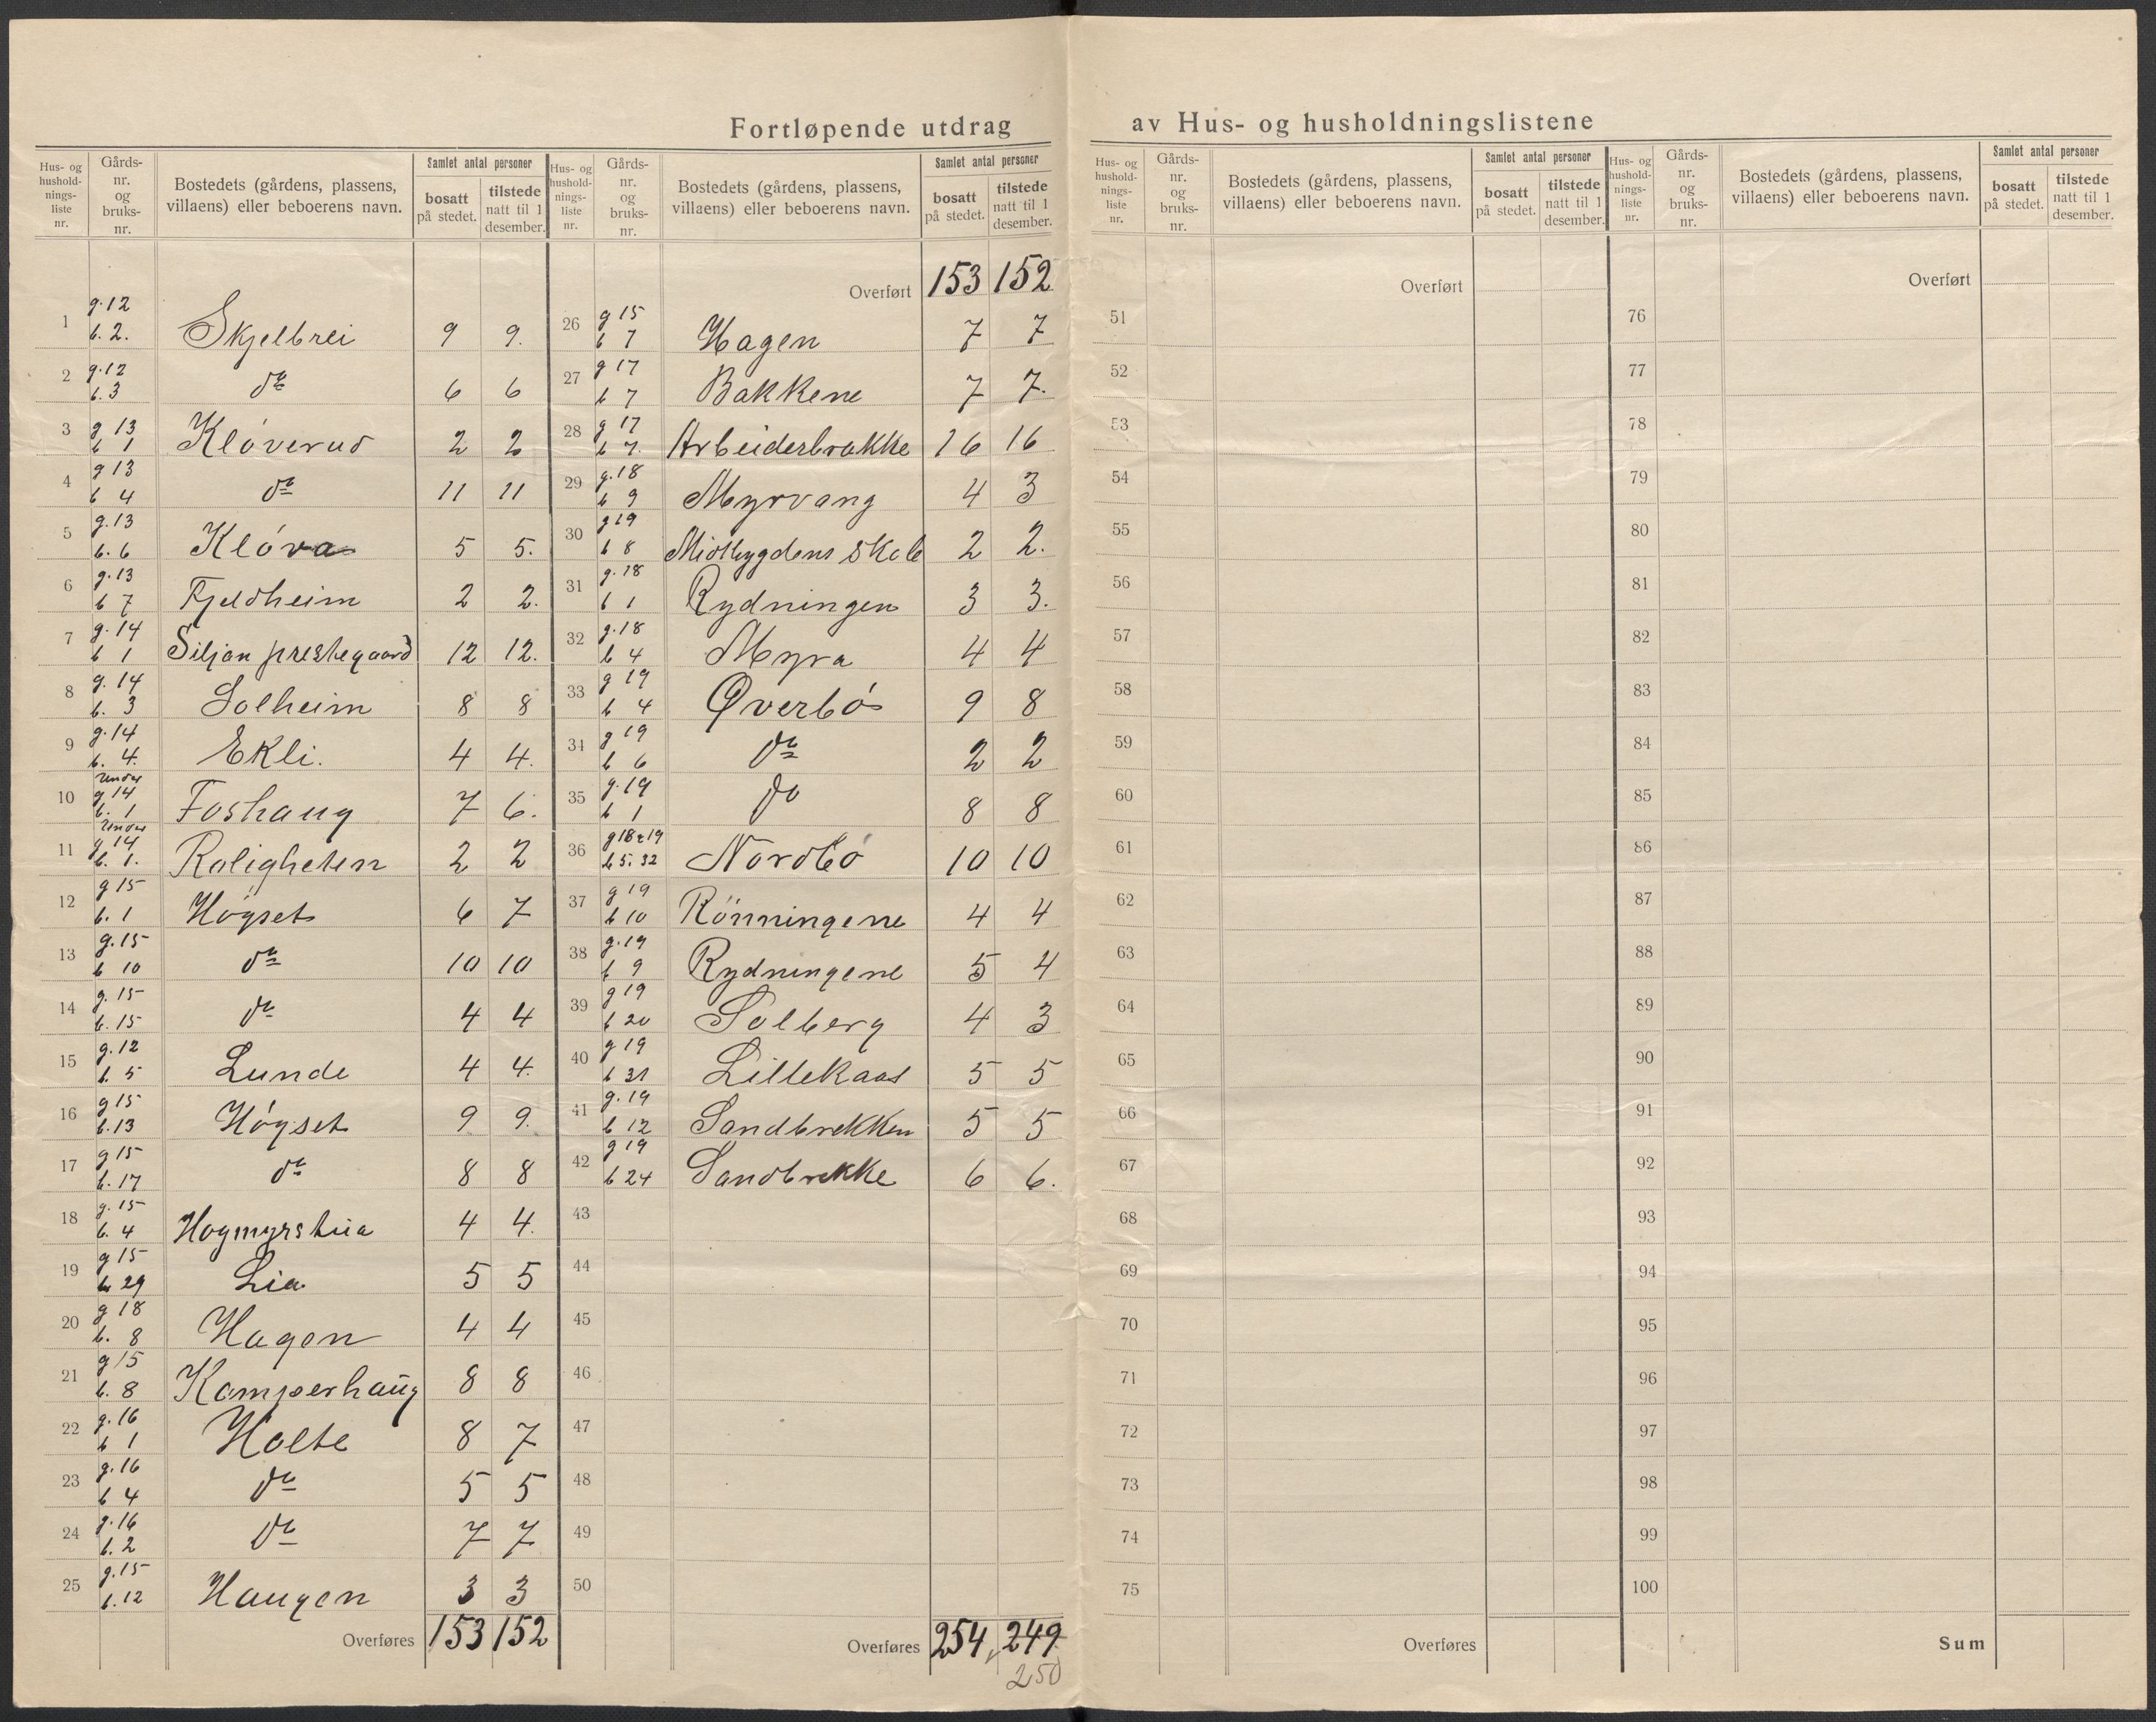 Fortløpende utdrag av Hus- og husholdningslistene
Hus- og hushold-nings-liste nr.
Gårds-nr. og bruks-nr.
Bostedets (gårdens, plassens, villaens) eller beboerens navn.
Samlet antal personer
bosatt på stedet.
tilstede natt til 1 desember.
1 g.12 b.2. Skjelbrei 9 9.
2 g.12 b.3 do 6 6
3 g 13 b 1 Kløverud 2 2
4 g 13 b 4 do 11 11
5 g.13 b.6 Kløva 5 5.
6 g.13 b 7 Fjeldheim 2 2.
7 g.14 b 1 Siljan prestegaard 12 12.
8 g.14 b.3 Solheim 8 8
9 g.14 b.4. Ekli. 4 4.
10 under g 14 b.1 Foshaug 7 6.
11 under g 14 b.1. Roligheten 2 2
12 g 15 b.1 Høgset 6 7
13 g.15 b 10 do 10 10
14 g.15 b.15 do 4 4
15 g.12 b.5 Lunde 4 4.
16 g 15 b.13 Høgset 9 9.
17 g 15 b.17 do 8 8
18 g.15 b.4 Hogmyrstua 4 4.
19 g 15 b 29 Lia 5 5
20 g 18 b.8 Hagen 4 4
21 g 15 b.8 Kamperhaug 8 8
22 g.16 b 1 Holte 8 7
23 g.16 b 4 do 5 5
24 g.16 b.2 do 7 7
25 g.15 b.12 Haugen 3 3
Overføres 153 152
Hus- og hushold-nings-liste nr.
Gårds-nr. og bruks-nr.
Bostedets (gårdens, plassens, villaens) eller beboerens navn.
Samlet antal personer
bosatt på stedet.
tilstede natt til 1 desember.
Overført 153 152
26 g 15 b 7 Hagen 7 7
27 g 17 b 7 Bakkene 7 7.
28 g 17 b 7. Arbeiderbrakke 16 16
29 g.18 b 9 Myrvang 4 3
30 g 19 b 8 Midtbygdens skole 2 2.
31 g.18 b 1 Rydningen 3 3.
32 g.18 b 4 Myra 4 4
33 g 19 b 4 Øverbø 9 8
34 g 19 b 6 do 2 2
35 g.19 b 1 do 8 8
36 g 18 & 19 b 5. 32 Nordbø 10 10
37 g 19 b 10 Rønningene 4 4
38 g.19 b 9 Rydningene 5 4
39 g 19 b 20 Solberg 4 3
40 g 19 b 31 Lillekaas 5 5
41 g.19 b 12 Sandbrekken 5 5
42 g 19 b 24 Sandbrekke 6 6.
43
44
45
46
47
48
49
50
Overføres 254, 249
250
Hus- og hushold-nings-liste nr.
Gårds-nr. og bruks-nr.
Bostedets (gårdens, plassens, villaens) eller beboerens navn.
Samlet antal personer
bosatt på stedet.
tilstede natt til 1 desember.
Overført
51
52
53
54
55
56
57
58
59
60
61
62
63
64
65
66
67
68
69
70
71
72
73
74
75
Overføres
Hus- og hushold-nings-liste nr.
Gårds-nr. og bruks-nr.
Bostedets (gårdens, plassens, villaens) eller beboerens navn.
Samlet antal personer
bosatt på stedet.
tilstede natt til 1 desember.
Overført
76
77
78
79
80
81
82
83
84
85
86
87
88
89
90
91
92
93
94
95
96
97
98
99
100
Sum